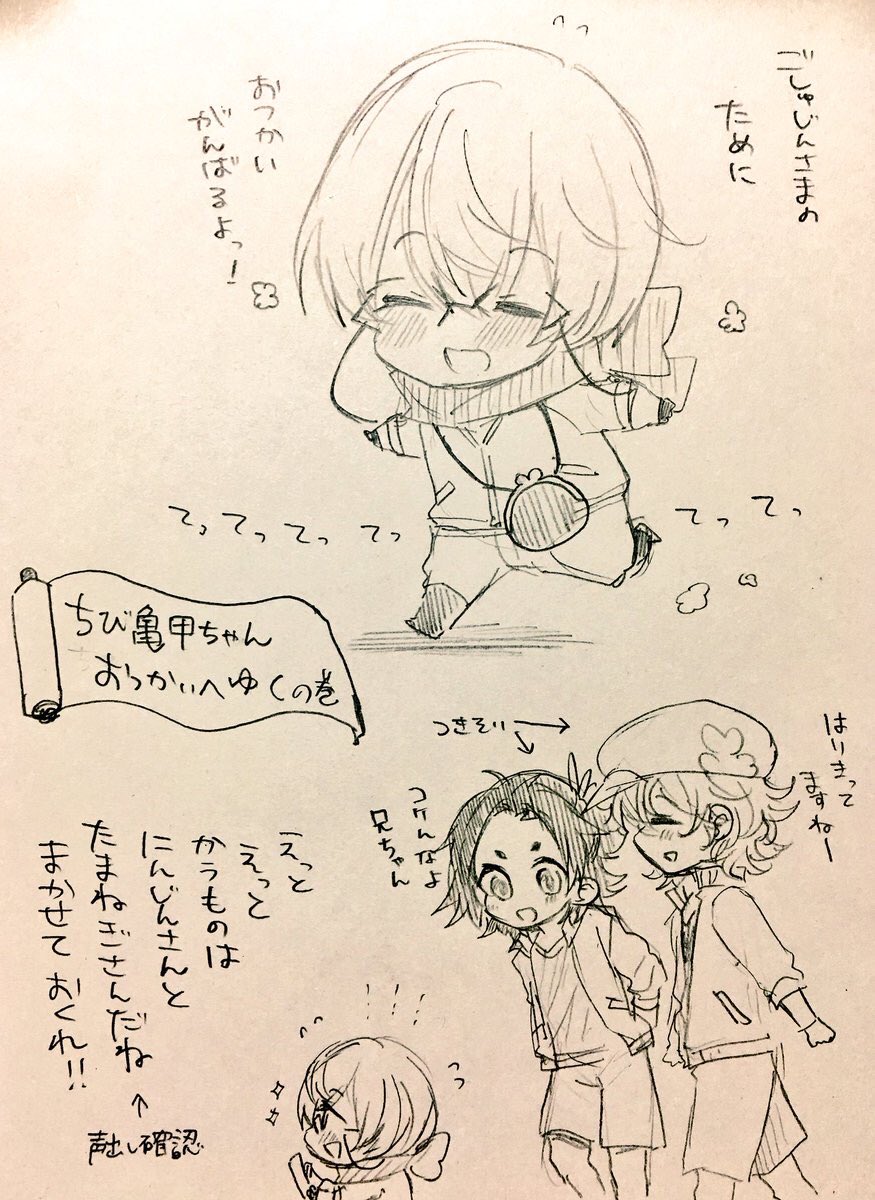 ごしゅじんさまの
ために
おつかい
がんばるよっ!
てってってってっ
てってっ
ちび亀甲ちゃん
おつかいへゆくの巻
つきそい
はりきって
ますねー
コケんなよ
兄ちゃん
えっと
えっと
かうものは
にんじんさんと
たまねぎさんだね
まかせておくれ!!
声出し確認